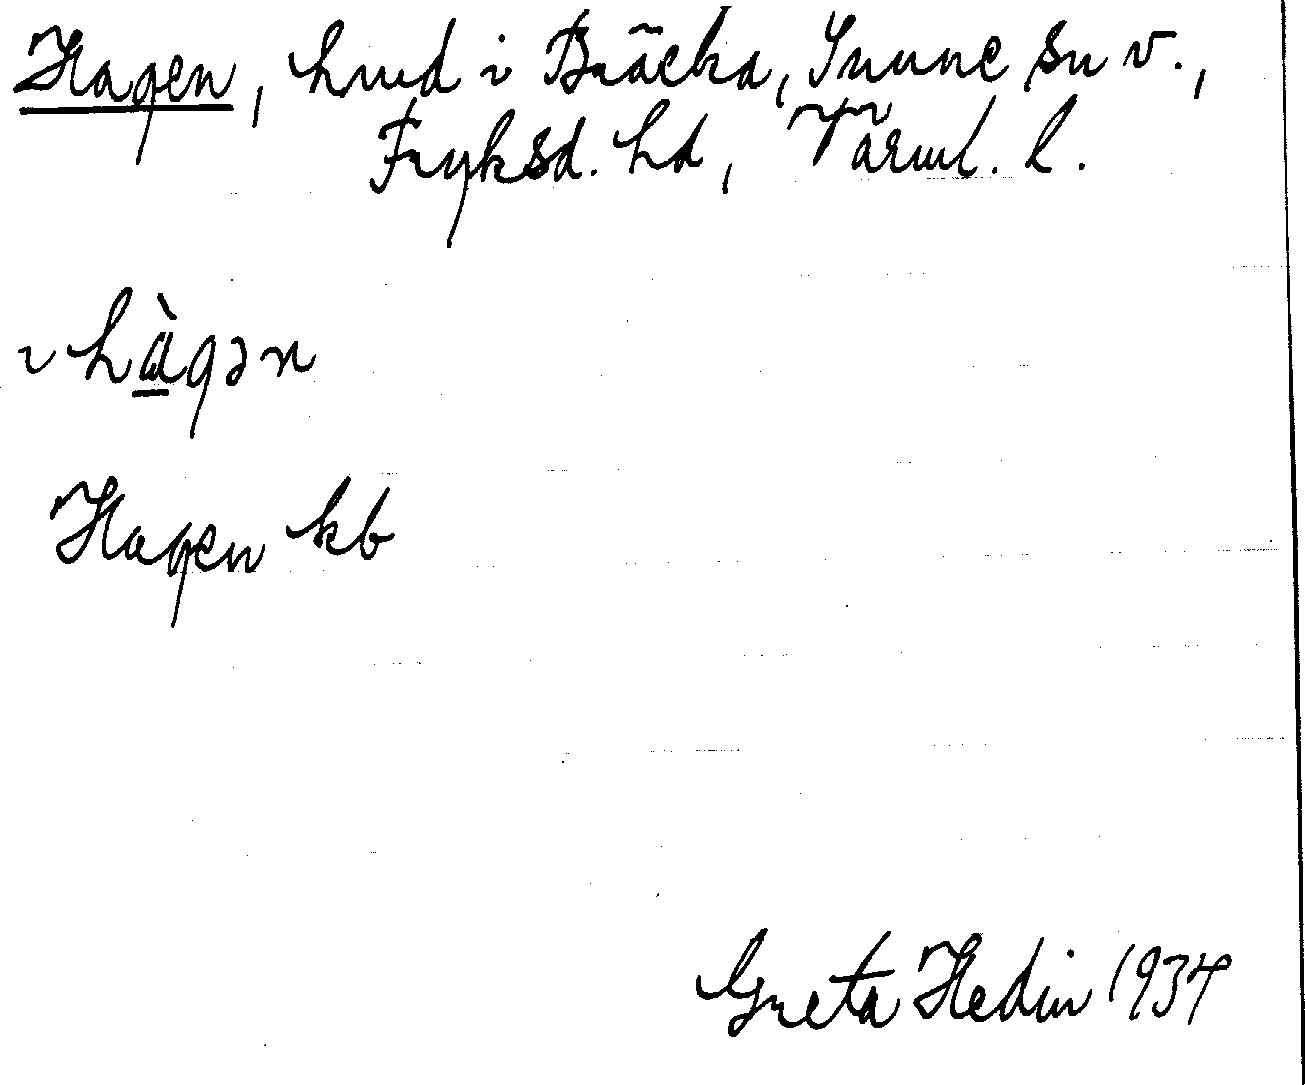 Hagen, hmd i Bräcka, Sunne sn v.,
Fryksd. hd, Värml. l.
i hàgən
Hagen kb
Greta Hedin 1934